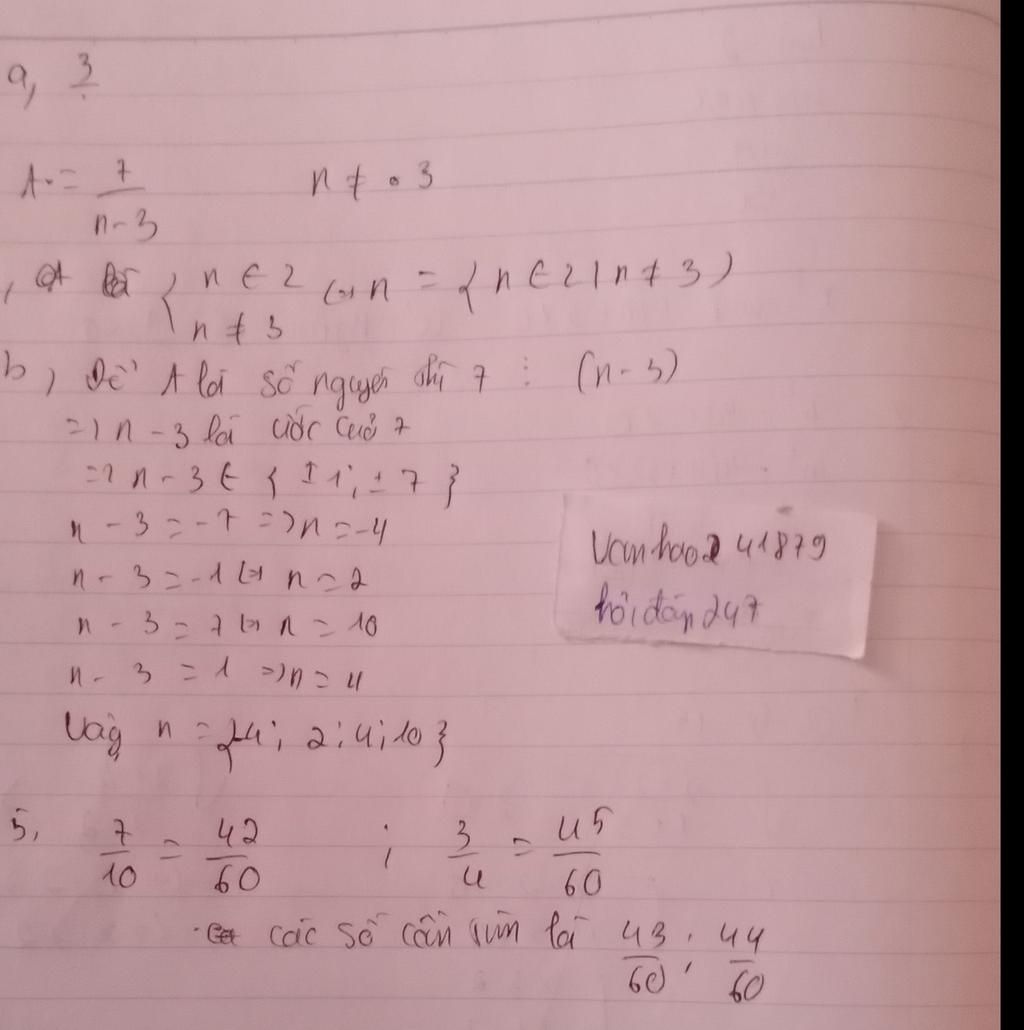 a, 3
A = 7/(n-3) n ≠ 3
, { n ∈ Z n ≠ 3 <=> n = { n ∈ Z | n ≠ 3 }
b) Để A là số nguyên thì 7 ⋮ (n-3)
=> n - 3 là ước của 7
=> n - 3 ∈ { ±1; ±7 }
n - 3 = -7 => n = -4
n - 3 = -1 <=> n = 2
n - 3 = 7 <=> n = 10
n - 3 = 1 => n = 4
Vậy n = {-4; 2; 4; 10}
vanhao241879
hỏi đáp 247
5, 7/10 = 42/60 ; 3/4 = 45/60
các số cần tìm là 43/60 ; 44/60